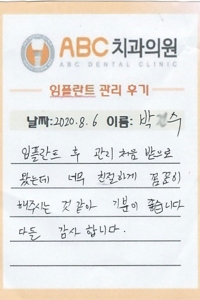 ABC 치과의원
ABC DENTAL CLINIC
임플란트 관리 후기
날짜: 2020. 8. 6 이름: 박 수
임플란트 후 관리 처음 받으로
왔는데 너무 친절하게 꼼꼼히
해주시는 것 같아 기분이 좋습니다
다들 감사합니다.